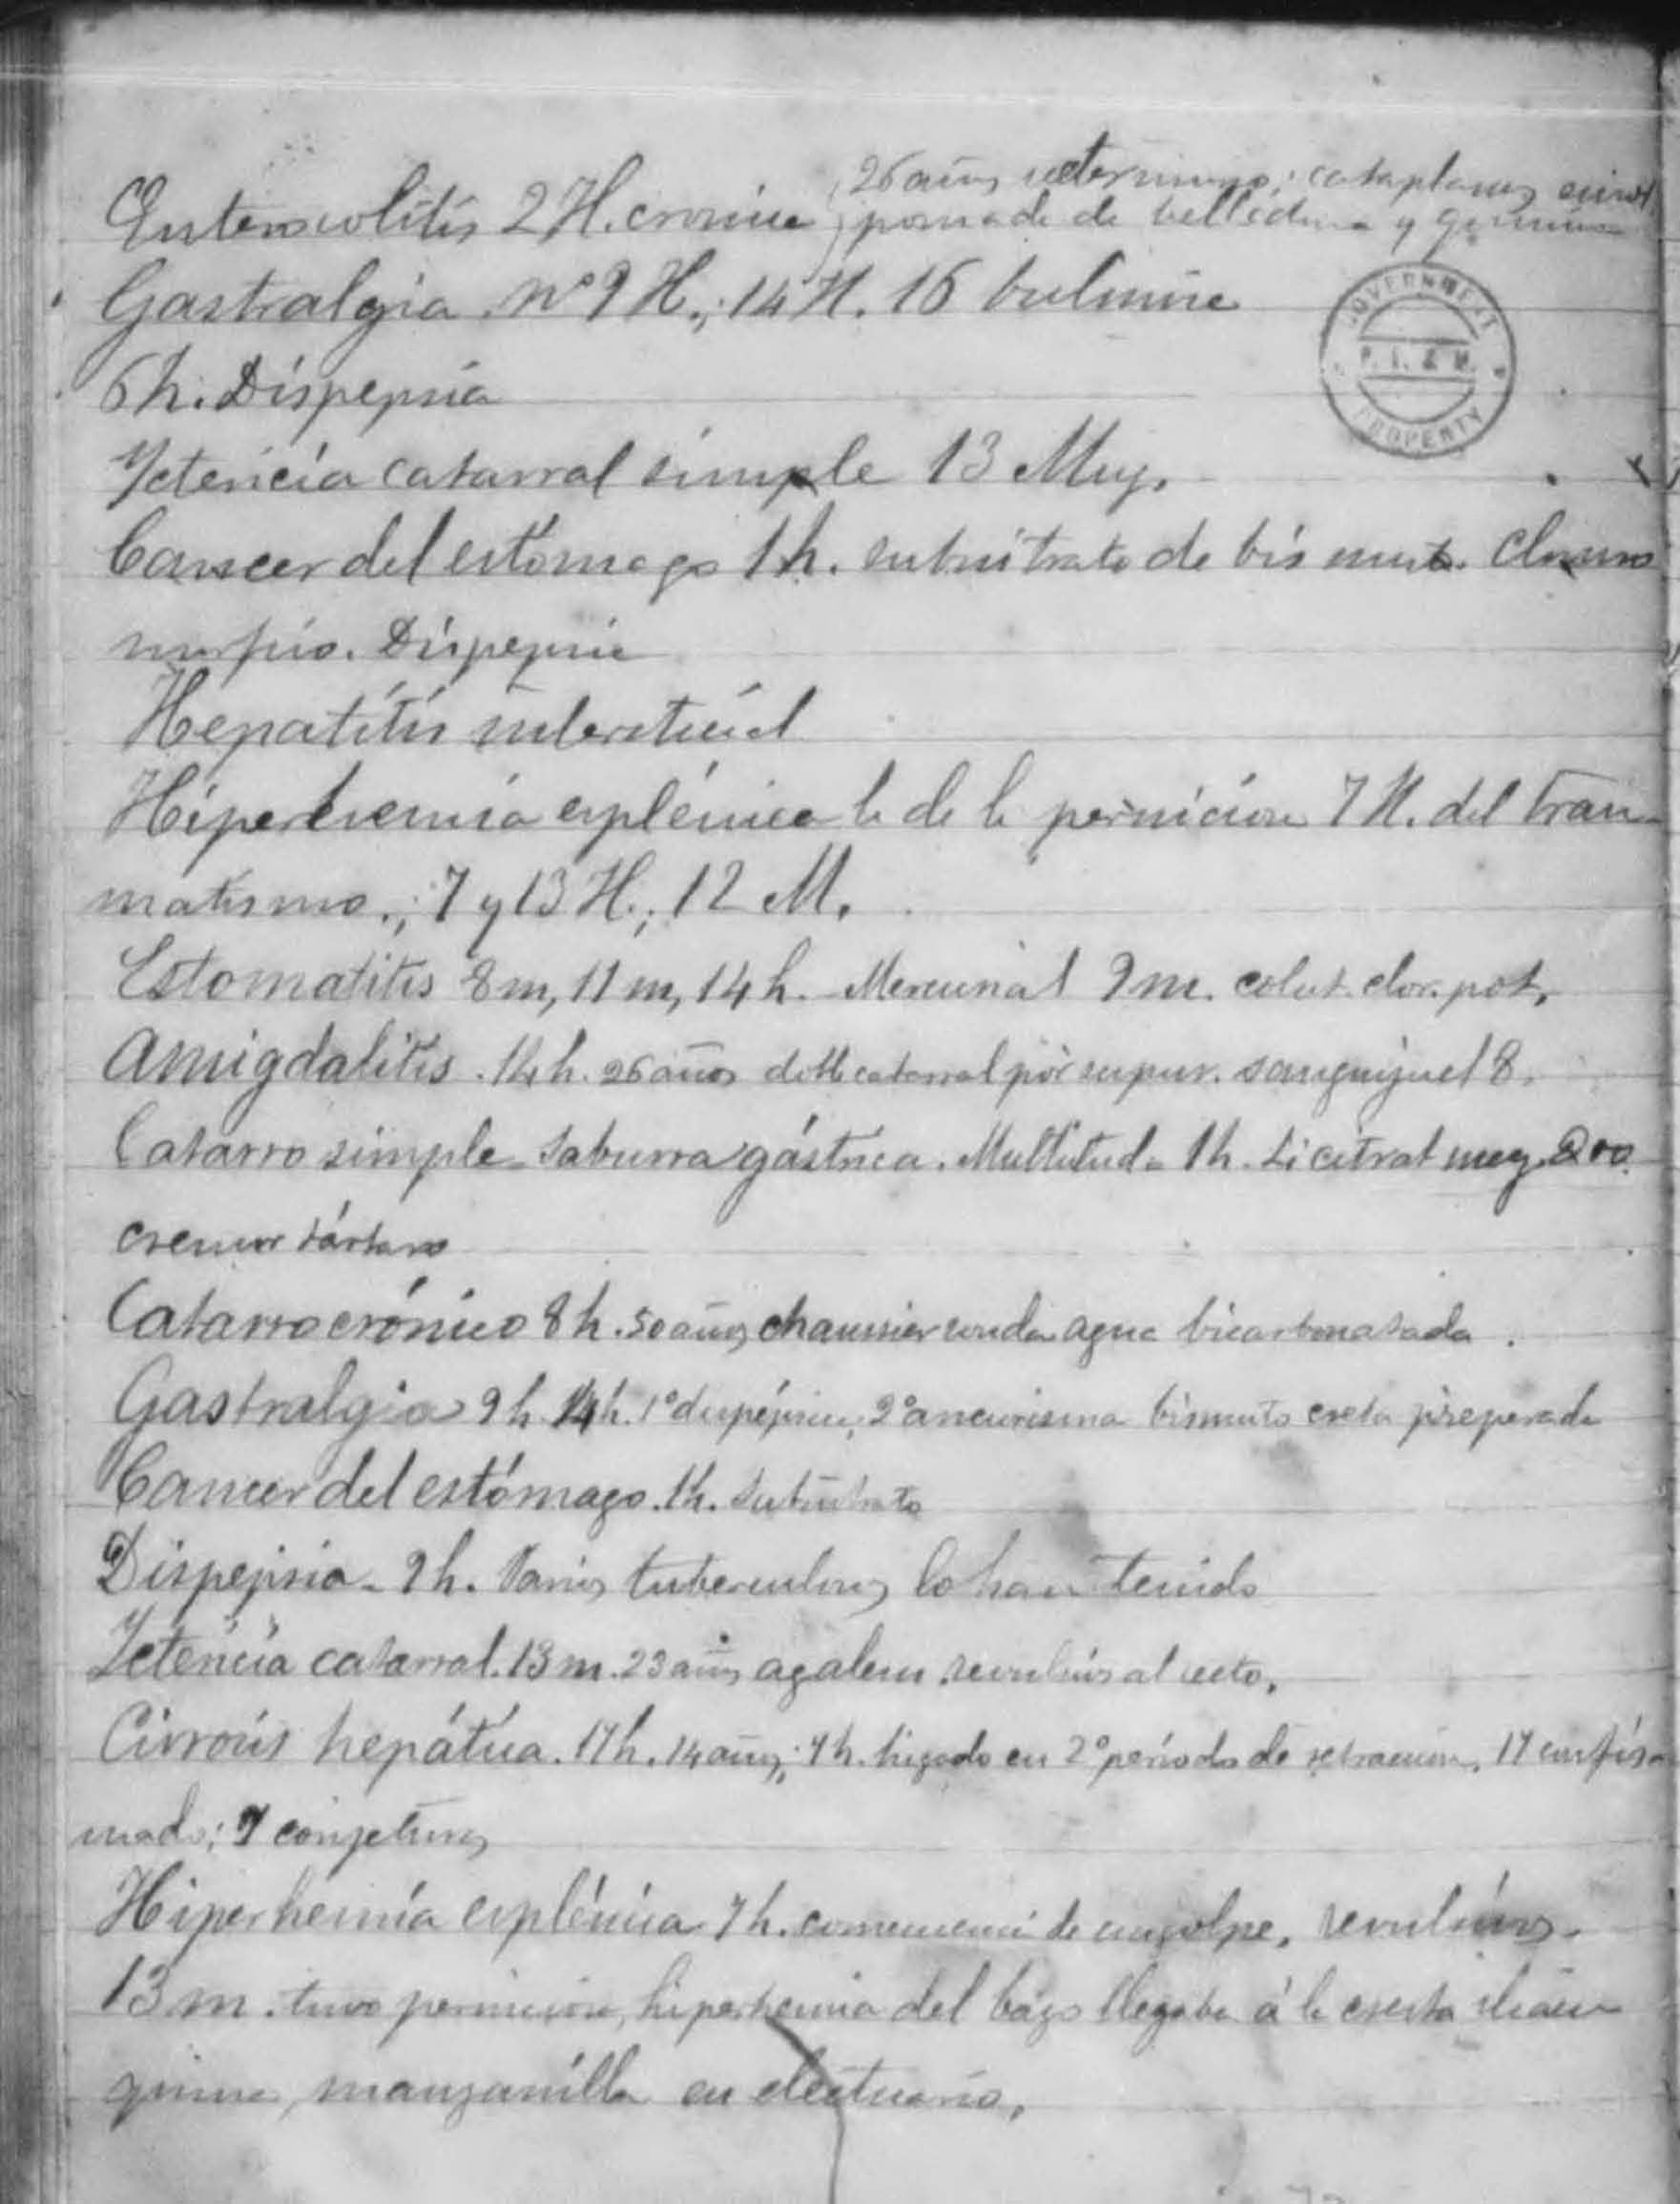 26 años cataplasmas
Enterocolitis 2 H. cronica pomada de belladona y quinina
Gastralgia nº 9 H.; 14 H. 16 bulimia
GOVERNMENT
P. I. & M.
PROPERTY
6 h. Dispepsia
Yctericia catarral simple 13 Muj.
Cancer del estómago 1 h. subnitrato de bismuto.
morfico. Dispepsia
Hepatitis intersticial
Hiperhemia esplénica la de la perniciosa 7 H. del trau-
matismo.; 7 y 13 H.; 12 M.
Estomatitis 8 m, 11 m, 14 h. Mercurial 9 m. colut. clor. pot.
Amigdalitis. 14 h. 26 años catarral por supur. sanguijuel 8.
Catarro simple saburra gástrica. Multitud 1 h. Li citrat meg. 200.
cremor tártaro
Catarro crónico 8 h. 50 años, chaussier sonda agua bicarbonatada.
Gastralgia 9 h. 14 h. 1º dispépsica, 2º aneurisma bismuto creta preparada
Cancer del estómago. 1 h. subnitrato
Dispepsia - 9 h. Varios tuberculosos lo han tenido
Yctericia catarral. 13 m. 23 años, revulsivos al recto.
Cirrosis hepática. 17 h. 14 años; 7 h. higado en 2º periodo de retraccion, 17 confir-
mado; 7 conjeturas
Hiperhemia esplénica 7 h. consecuencia de un golpe, revulsivos.
13 m. tuvo perniciosa, hiperhemia del bazo llegaba á la cresta iliaca
quina, manzanilla en electuario.